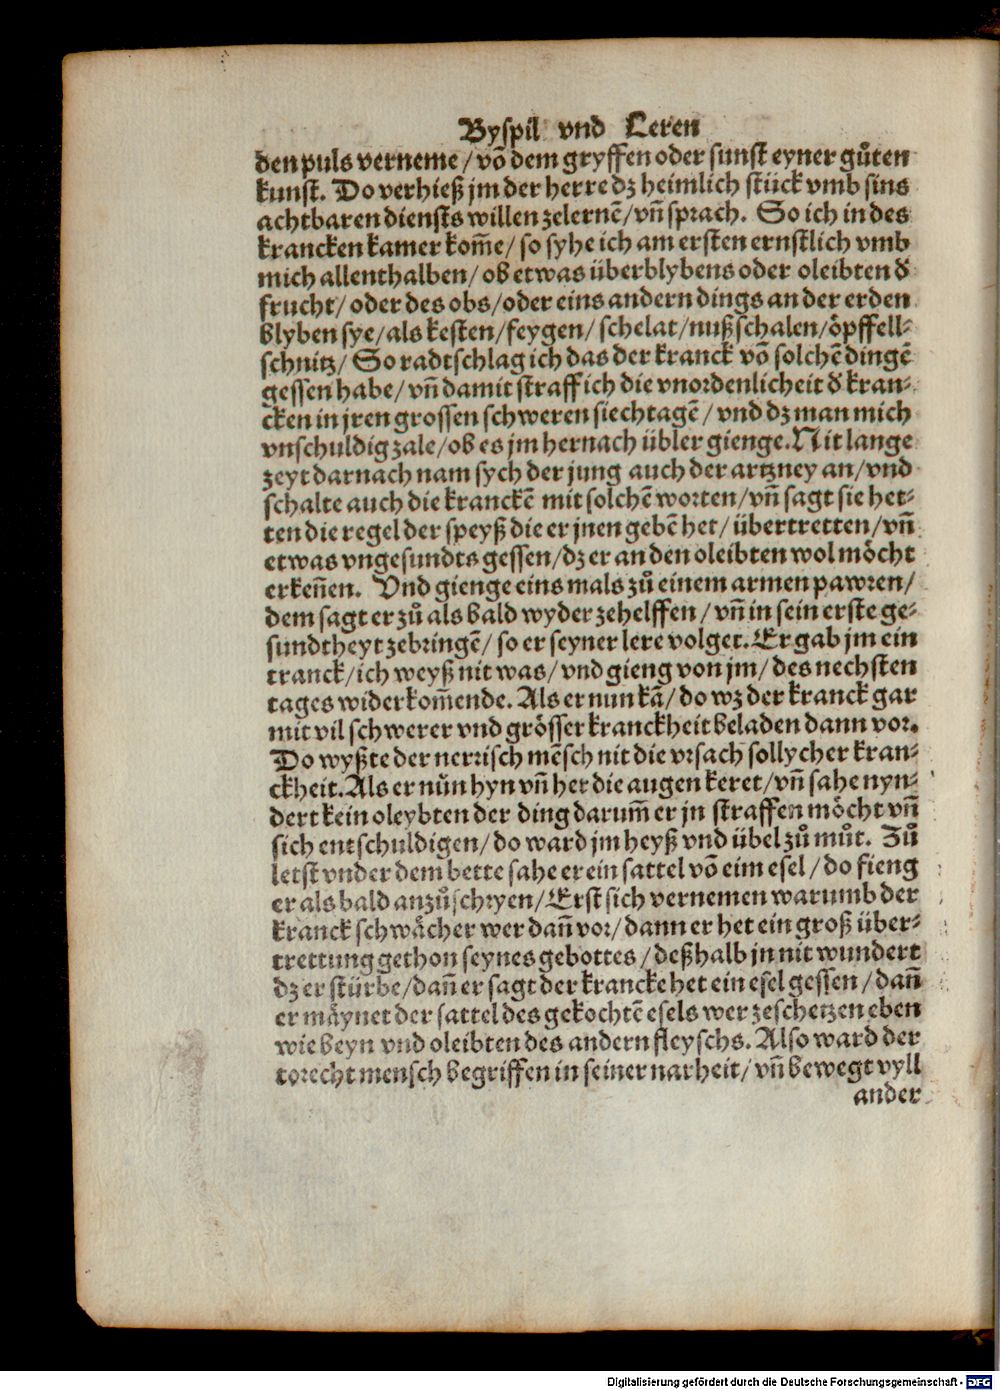 Byspil vnd Leren
den puls verneme / võ dem gryffen oder sunst eyner gůten
kunst. Do verhieß jm der herre dz heimlich stück vmb sins
achtbaren diensts willen zelernẽ / vñ sprach. So ich in des
krancken kamer kom̃e / so syhe ich am ersten ernstlich vmb
mich allenthalben / ob etwas überblybens oder oleibten d̕
frucht / oder des obs / oder eins andern dings an der erden
blyben sye / als kesten / feygen / schelat / nußschalen / öpffell-
schnitz / So radtschlag ich das der kranck võ solchẽ dingẽ
gessen habe / vñ damit straff ich die vnordenlicheit d̕ kran-
cken in jren grossen schweren siechtagẽ / vnd dz man mich
vnschuldig zale / ob es jm hernach übler gienge. Nit lange
zeyt darnach nam sych der jung auch der artzney an / vnd
schalte auch die kranckẽ mit solchẽ worten / vñ sagt sie het-
ten die regel der speyß die er jnen gebẽ het / übertretten / vñ
etwas vngesundts gessen / dz er an den oleibten wol möcht
erkeñen. Vnd gienge eins mals zů einem armen pawren /
dem sagt er zů als bald wyder zehelffen / vñ in sein erste ge-
sundtheyt zebringẽ / so er seyner lere volget. Er gab jm ein
tranck / ich weyß nit was / vnd gieng von jm / des nechsten
tages widerkom̃ende. Als er nun kã / do wz der kranck gar
mit vil schwerer vnd grösser kranckheit beladen dann vor.
Do wyßte der nerrisch mẽsch nit die vrsach sollycher kran-
ckheit. Als er nůn hyn vñ her die augen keret / vñ sahe nyn-
dert kein oleybten der ding darum̃ er jn straffen möcht vñ
sich entschuldigen / do ward jm heyß vnd übel zů můt. Zů
letst vnder dem bette sahe er ein sattel võ eim esel / do fieng
er als bald an zů schryen / Erst sich vernemen warumb der
kranck schwächer wer dañ vor / dann er het ein groß über-
trettung gethon seynes gebottes / deßhalb jn nit wundert
dz er stürbe / dañ er sagt der krancke het ein esel gessen / dañ
er mäynet der sattel des gekochtẽ esels wer zeschetzen eben
wie beyn vnd oleibten des andern fleyschs. Also ward der
torecht mensch begriffen in seiner narheit / vñ bewegt vyll
ander
Digitalisierung gefördert durch die Deutsche Forschungsgemeinschaft - DFG